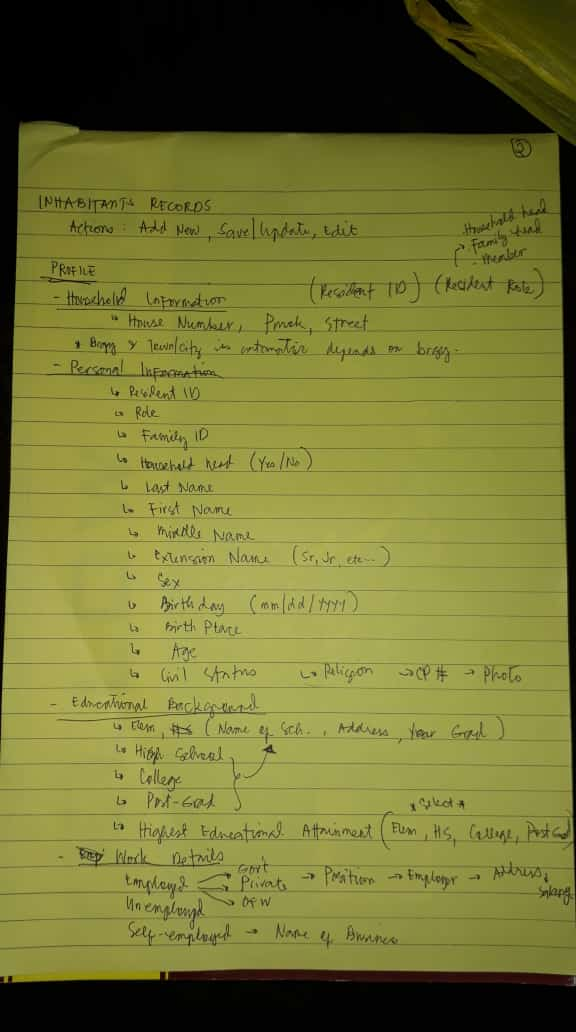 2
INHABITANTS RECORDS
Actions: Add New, Save/Update, Edit
Household head
Family head
- member
PROFILE
(Resident ID) (Resident Role)
- Household Information
House Number, Purok, Street
* Brgy & Town/City is automatic depends on brgy.
- Personal Information
↳ Resident ID
↳ Role
↳ Family ID
↳ Household head (Yes/No)
↳ Last Name
↳ First Name
↳ Middle Name
↳ Extension Name (Sr, Jr, etc...)
↳ Sex
↳ Birthday (mm/dd/yyyy)
↳ Birth Place
↳ Age
↳ Civil Status ↳ Religion → CP# → Photo
- Educational Background
↳ Elem, (Name of Sch., Address, Year Grad)
↳ High School
↳ College
↳ Post-Grad
* Select *
↳ Highest Educational Attainment (Elem, HS, College, Post Grad
- Work Details
Gov't
Employed → Private → Position → Employer → Address,
OFW
Unemployed
Self-employed → Name of Business